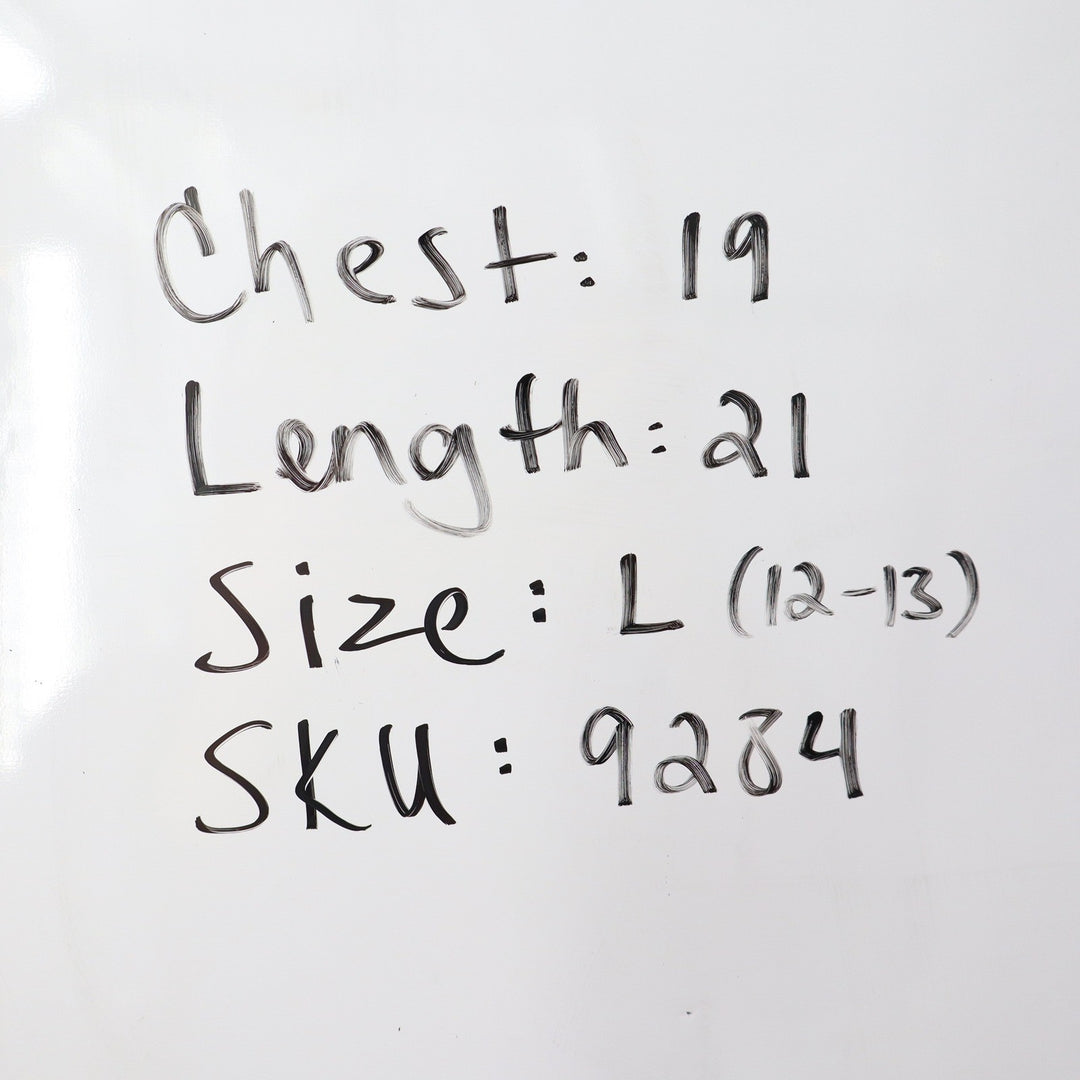 Chest: 19
Length: 21
Size: L (12-13)
SKU: 9284